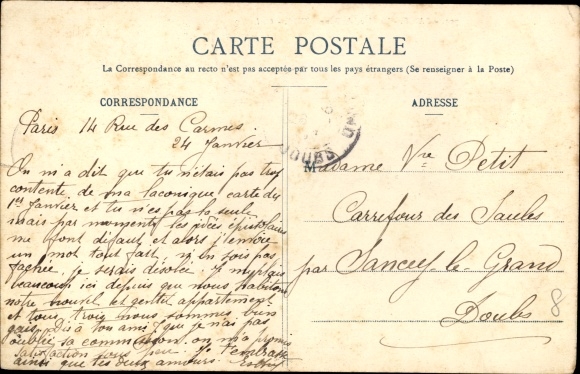 CARTE POSTALE
La Correspondance au recto n'est pas acceptée par tous les pays étrangers (Se renseigner à la Poste)
CORRESPONDANCE
ADRESSE
Paris 14 Rue des Carmes.
24 Janvier
On m'a dit que tu n'étais pas trop
contente de ma laconique carte du
1er Janvier et tu n'es pas la seule
mais par moments les idées épistolaires
me font défaut et alors j'envoie
un mot tout fait, n'en sois pas
fachée, je serais désolée. Je m'y plais
beaucoup ici depuis que nous habitons
notre nouvel et gentil appartement
et tous trois nous sommes bien
gais, dis à ton ami que je n'ai pas
oublié sa commission, on m'a promis
satisfaction sous peu. Je t'embrasse
ainsi que tes deux amours.
Madame Vve Petit
Carrefour des Saules
par Sancey-le-Grand
Doubs
8
DOUBS